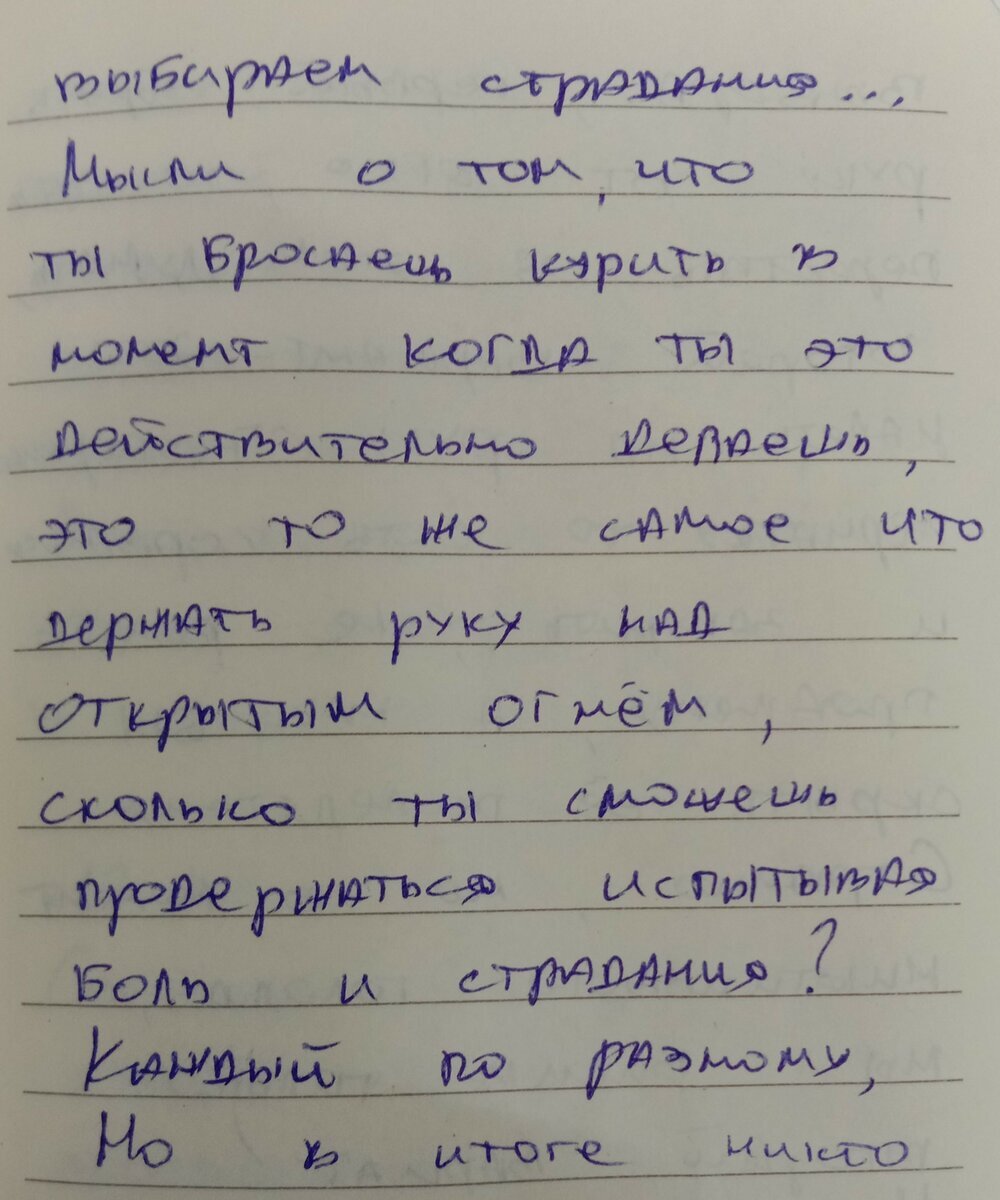 выбираем страдания...
Мысли о том, что
ты бросаешь курить в
момент когда ты это
действительно делаешь,
это то же самое что
держать руку над
открытым огнём,
сколько ты сможешь
продержаться испытывая
боль и страдания?
Каждый по разному,
Но в итоге никто